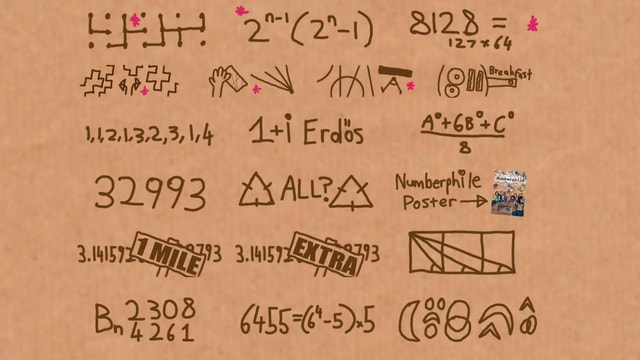 2ⁿ⁻¹(2ⁿ-1)
8128 =
127x64
Breakfast
1,1,2,1,3,2,3,1,4
1+i Erdős
A°+6B°+C°
8
32993
ALL?
Numberphile
Poster →
Numberphile
3.14159
1 MILE
793
3.14159
EXTRA
793
Bn 2308
4261
6455=(6⁴-5)x5